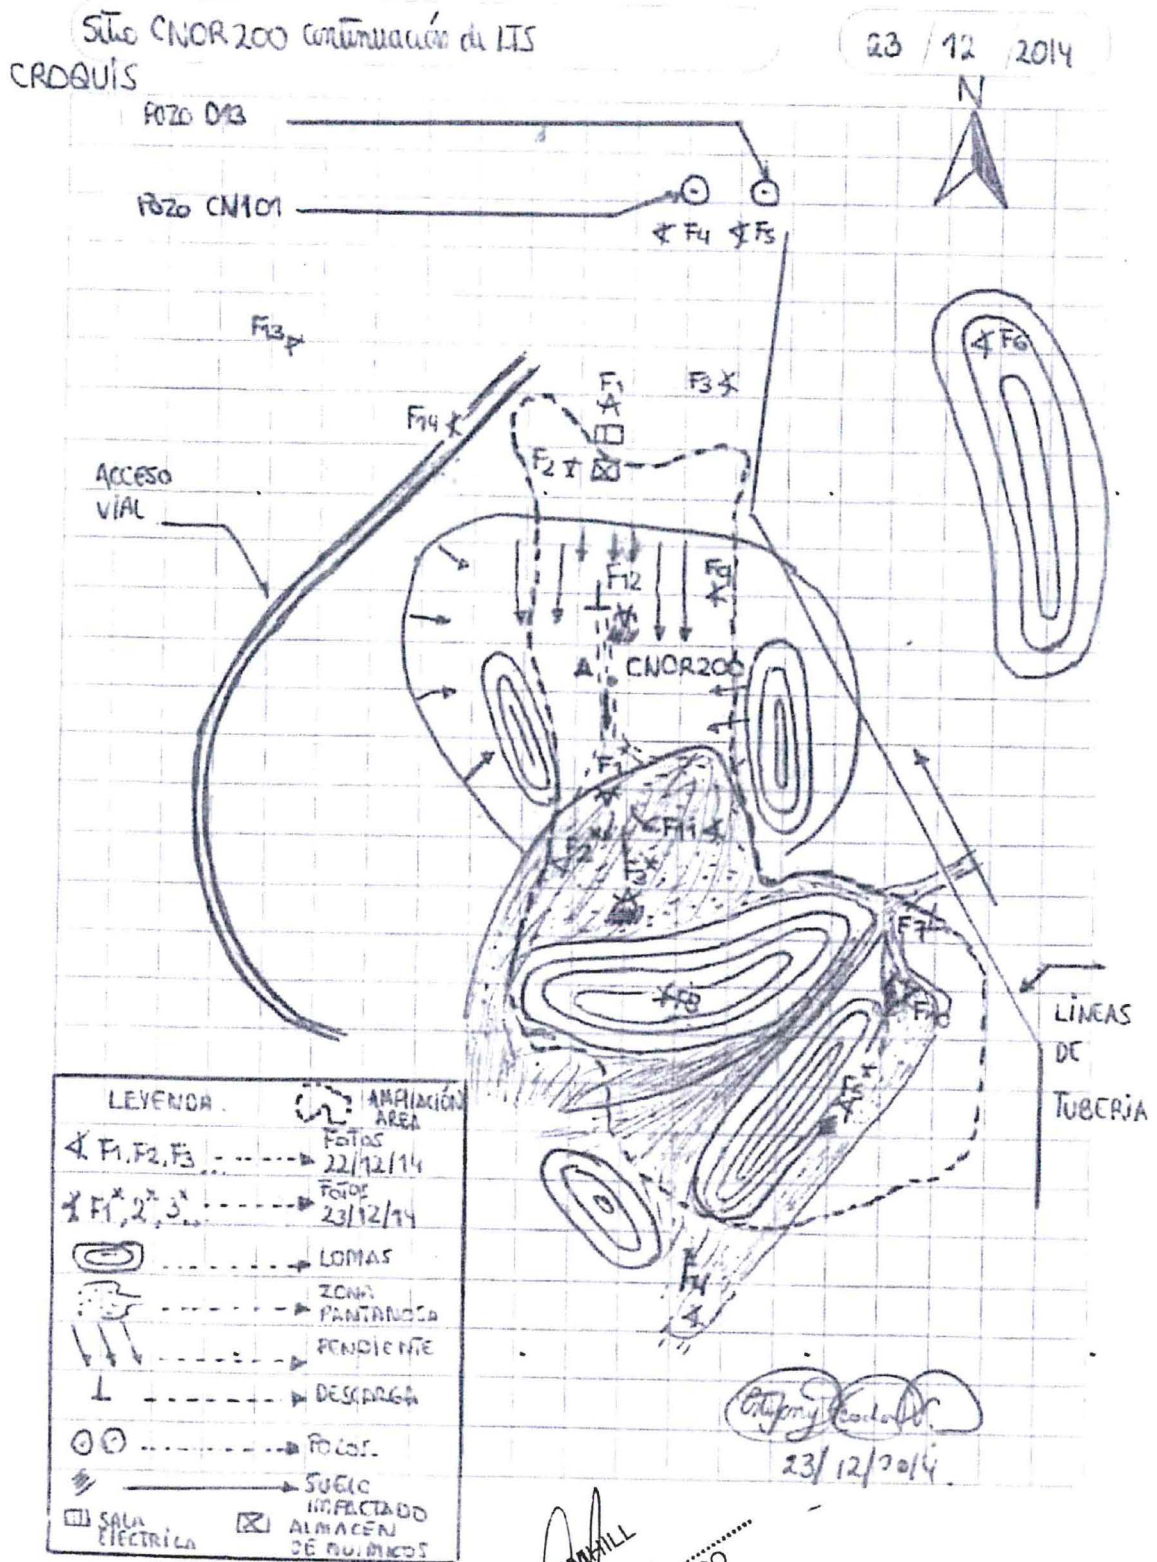 Sitio CNOR200 continuación de LTS
23 / 12 / 2014
CROQUIS
N
POZO D13
POZO CN101
F4
F5
F6
F13
F1
F3
F14
F2
ACCESO
VIAL
F12
F9
A
CNOR200
F1
F2*
F11
F3*
F7
F8
F10
LÍNEAS
DE
TUBERÍA
F5*
F4*
LEYENDA
AMPLIACIÓN
AREA
F1, F2, F3 ...
FOTOS
22/12/14
F1*, 2*, 3* ...
FOTOS
23/12/14
LOMAS
ZONA
PANTANOSA
PENDIENTE
DESCARGA
POZOS.
SUELO
IMPACTADO
SALA
ELÉCTRICA
ALMACÉN
DE QUIMICOS
23/12/2014